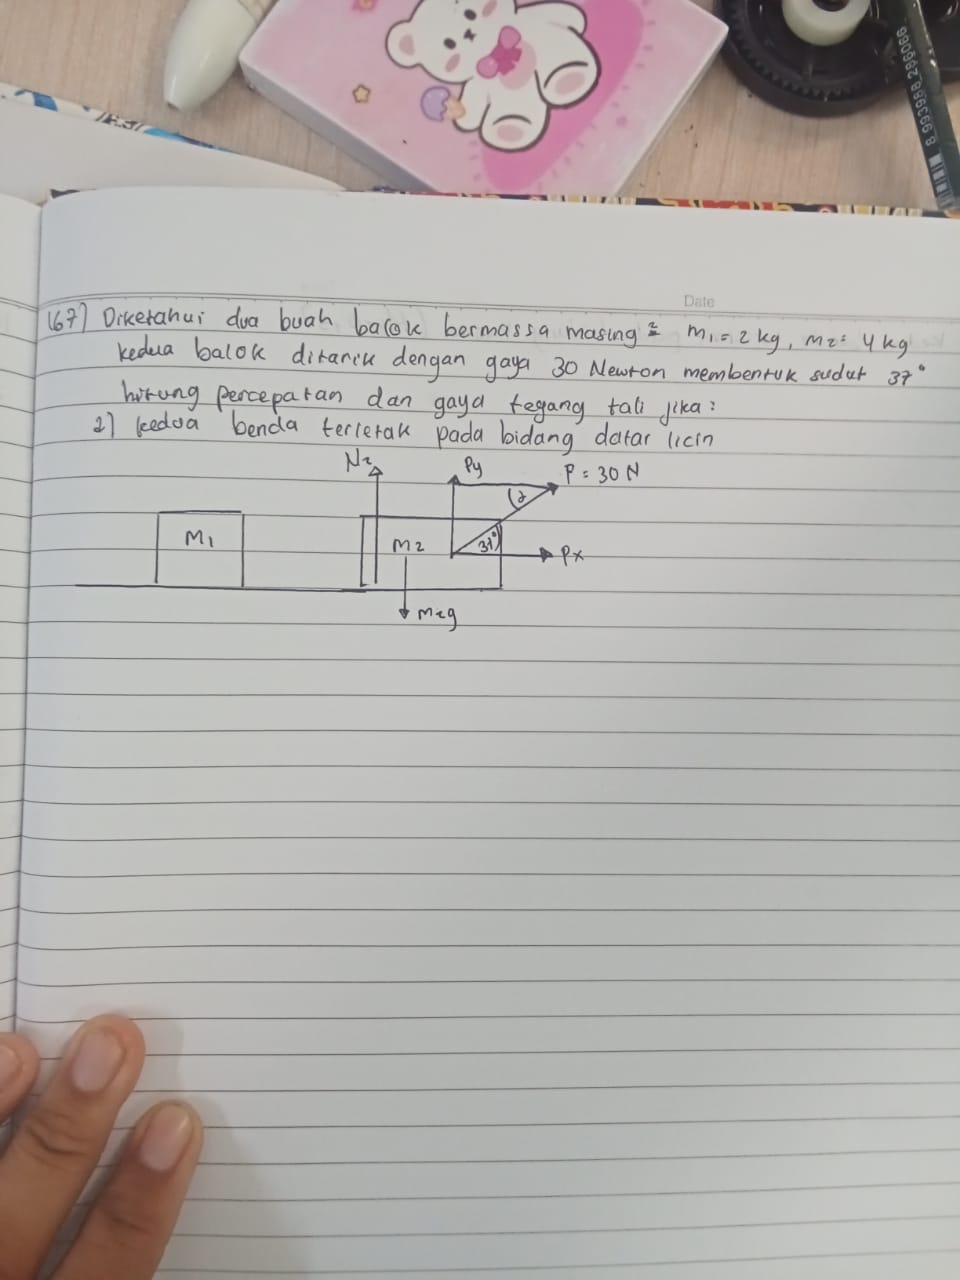 8.993988.286066
Date
167) Diketahui dua buah balok bermassa masing ² m₁ = 2 kg, m₂ = 4 kg
kedua balok ditarik dengan gaya 30 Newton membentuk sudut 37°
hitung percepatan dan gaya tegang tali jika :
2) kedua benda terletak pada bidang datar licin
N₂ Py P = 30 N
M₁ M₂ 37° Px
M₂g